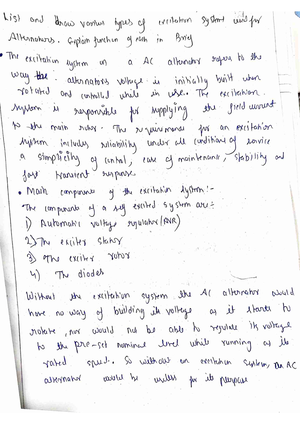 List and draw various types of excitation system used for
Alternators. Explain function of each in Brief
• The excitation system in a AC alternator refers to the
way the alternators voltage is initially built when
rotated and controlled while in use. The excitation
system is responsible for supplying the field current
to the main rotor. The requirements for an excitation
system includes reliability under all conditions of service
a simplicity of control, ease of maintenance, stability and
fast transient response.
• Main components of the excitation system:-
• The components of a self excited system are:-
1) Automatic voltage regulator (AVR)
2) The exciter stator
3) The exciter rotor
4) The diodes
Without the excitation system the AC alternator would
have no way of building its voltage as it starts to
rotate, nor would not be able to regulate its voltage
to the pre-set nominal level while running at its
rated speed. So without an excitation system, the AC
alternator would be useless for its purpose